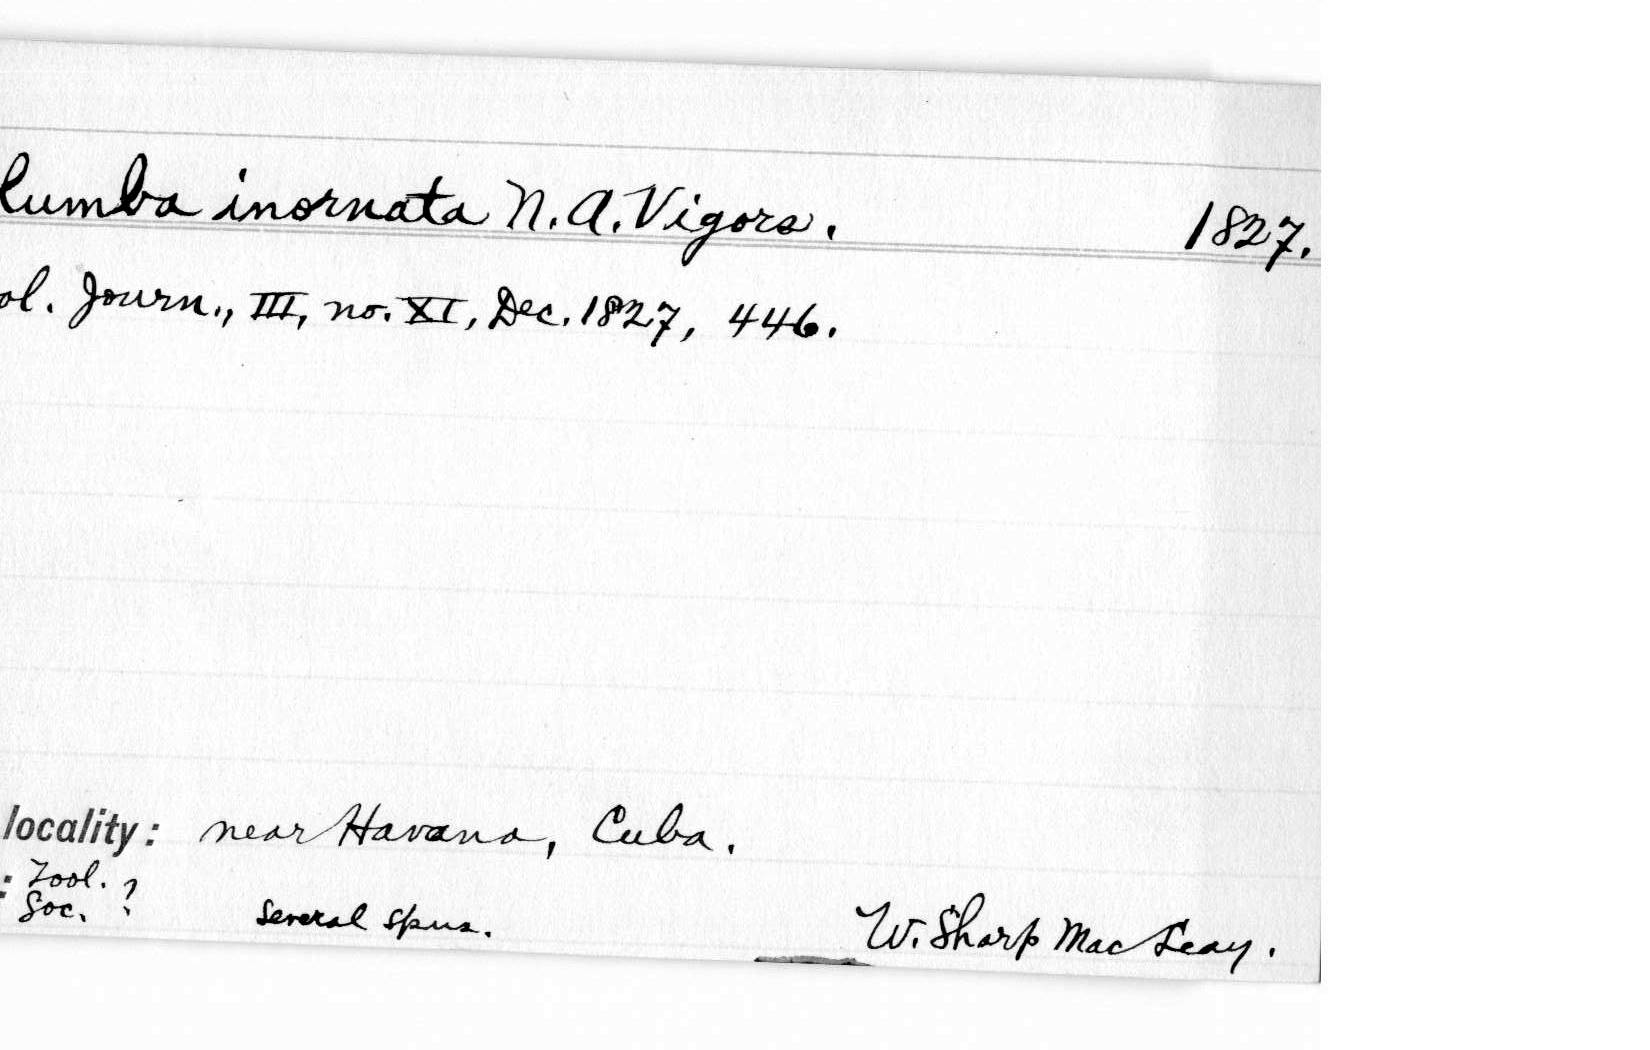 lumba inornata N.A.Vigors. 1827.
ol. Journ., III, no. XI, Dec. 1827, 446.
locality: near Havana, Cuba.
: Zool. Soc. ? several spns. W. Sharp MacLeay.